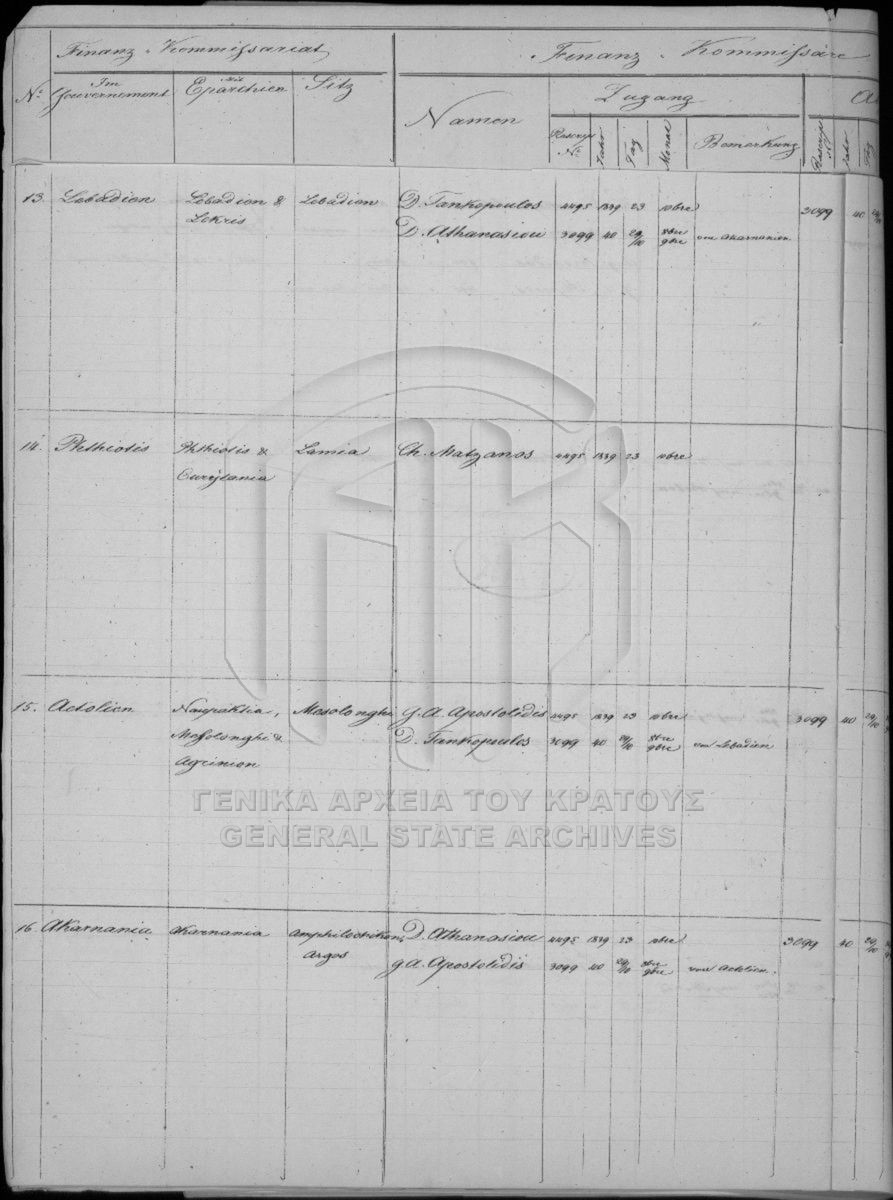 Finanz-Kommissariat Finanz-Kommissäre
Nº Im Gouvernement mit Eparchien Sitz Namen Zugang
Rescript Nº Jahr Tag Monat Bemerkung Rescript Nº Jahr Tag
13. Lebadien Lebadien & Lebadien D. Tankopoulos 4495 1839 23 10bre 3099 40 29/10
Lokris D. Athanasiou 3099 40 29/10 8bre 9bre von Akarnanien
14. Phthiotis Phthiotis & Lamia Ch. Matzanos 4495 1839 23 10bre
Eurytania
15. Aetolien Naupaktia, Mesolonghi G. A. Apostolidis 4495 1839 23 10bre 3099 40 29/10
Messolonghi & D. Tankopoulos 3099 40 29/10 8bre 9bre von Lebadien
Agrinion
16. Akarnania Akarnania Amphilochikon D. Athanasiou 4495 1839 23 10bre 3099 40 29/10
Argos G. A. Apostolidis 3099 40 29/10 8bre 9bre von Aetolien.
ΓΕΝΙΚΑ ΑΡΧΕΙΑ ΤΟΥ ΚΡΑΤΟΥΣ
GENERAL STATE ARCHIVES